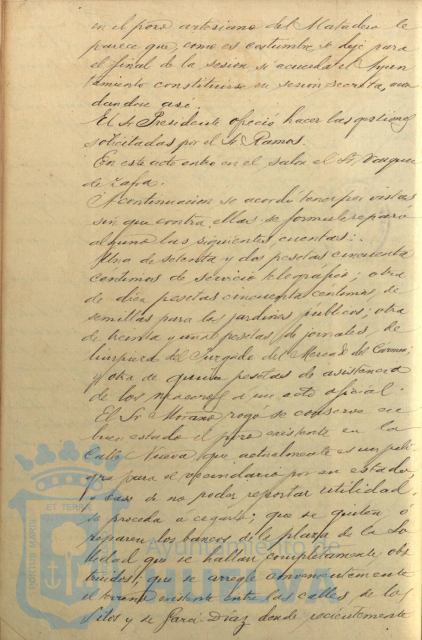 en el pozo artesiano del Matadero le
parece que, como es costumbre, se deje para
el final de la sesion si acuerda el Ayun-
tamiento constituirse en sesion secreta, acor
dandose asi.
El Sr Presidente ofreció hacer las gestiones
solicitadas por el Sr Ramos.
En este acto entro en el salon el Sr Vazquez
de Zafra.
A continuacion se acordó tener por vistas
sin que contra ellas se formule reparo
alguno las siguientes cuentas:
Una de setenta y dos pesetas cincuenta
centimos de servicio telegrafico; otra
de diez pesetas cincuenta centimos, de
semillas para los jardines públicos; otra
de treinta y una pesetas de jornales de
limpieza del Juzgado del Mercado del Carmen;
y otra de quince pesetas de asistencia
de los maceros a un acto oficial.
El Sr Morano rogó se conserve en
buen estado el pozo existente en la
Calle Nueva que actualmente es un peli-
gro para el vecindario por su estado,
y caso de no poder reportar utilidad
se proceda á cegarlo; que se quiten ó
reparen los bancos de la plaza de la So-
ledad que se hallan completamente obs
truidos; que se arregle convenientemente
el terreno existente entre las calles de los
Silos y de Garci Diaz donde recientemente
PORTUS MARIS
ET TERRE
Ayuntamiento de
HUELVA